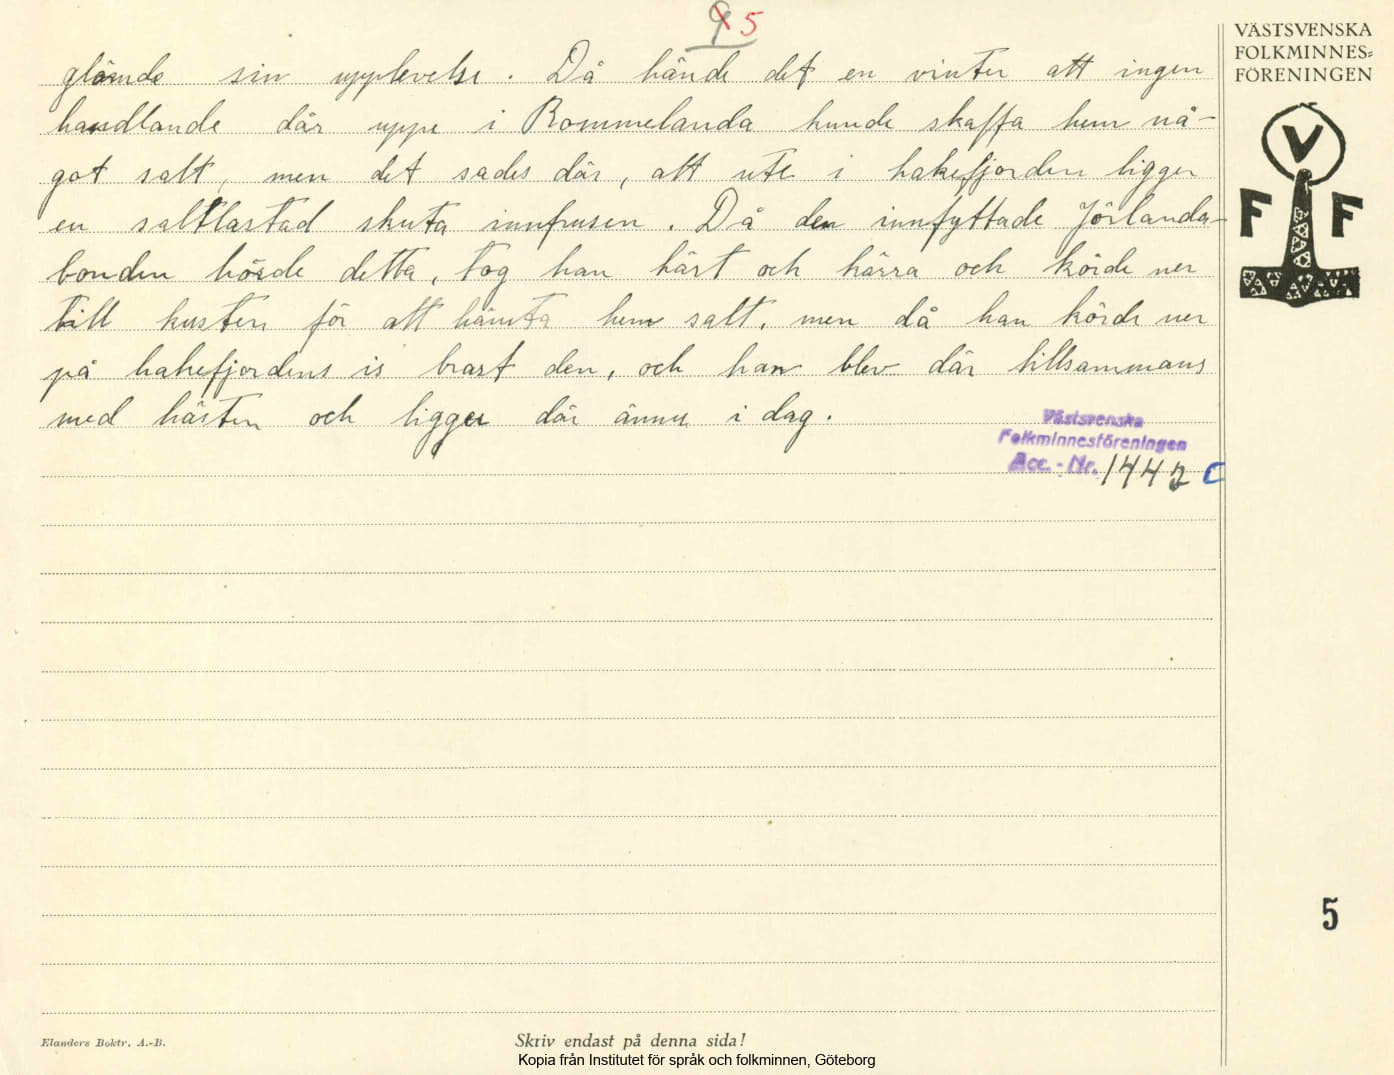 9 5
VÄSTSVENSKA
FOLKMINNES=
FÖRENINGEN
glömde sin upplevelse. Då hände det en vinter att ingen
handlande där uppe i Rommelanda kunde skaffa hem nå-
got salt, men det sades där, att ute i hakefjorden ligger
en saltlastad skuta innfrusen. Då den innfyttade Jörlanda-
bonden hörde detta, tog han häst och kärra och körde ner
till kusten för att hämta hem salt, men då han körde ner
på hakefjordens is brast den, och han blev där tillsammans
med hästen och ligger där ännu i dag.
V
F F
Västsvenska
Folkminnesföreningen
Acc. - Nr. 1442 C
5
Elanders Boktr. A.-B.
Skriv endast på denna sida!
Kopia från Institutet för språk och folkminnen, Göteborg